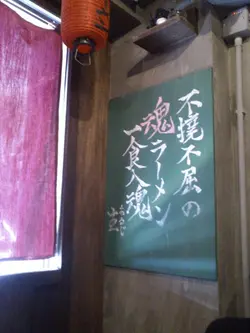 不撓不屈の
魂ラーメン
一食入魂